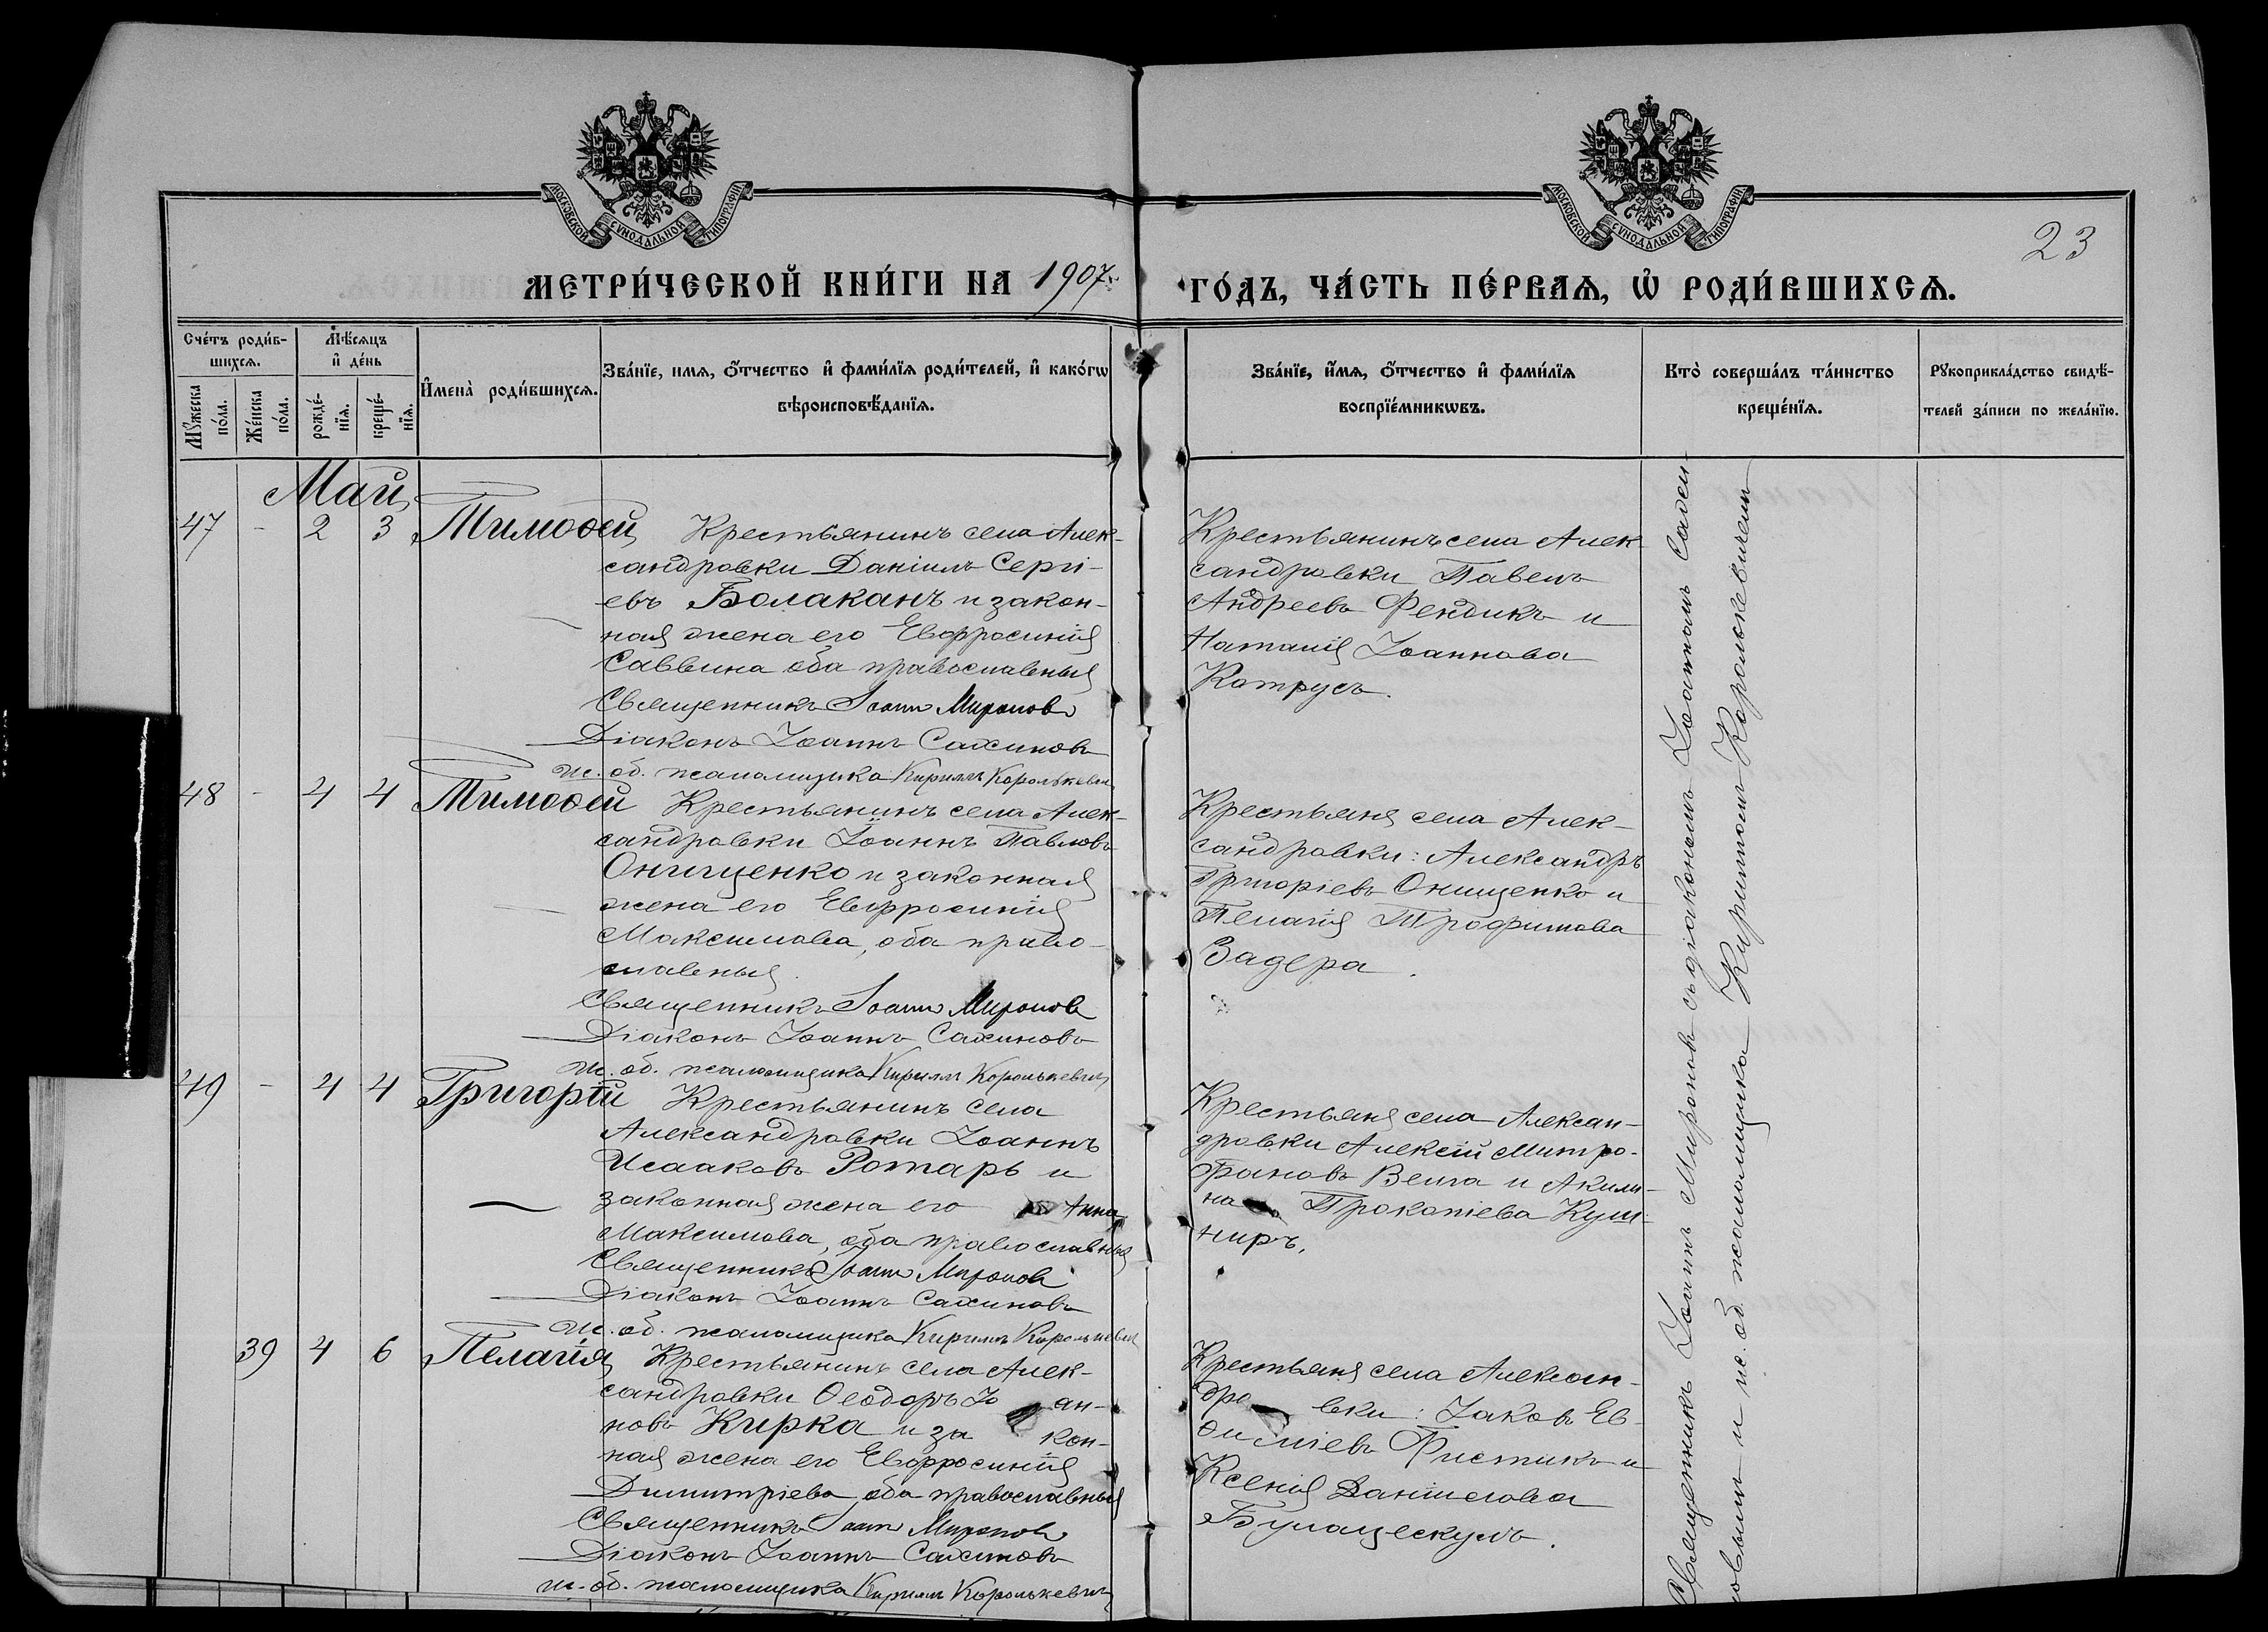 МОСКОВСКОЙ СѴНОДАЛЬНОЙ ТИПОГРАФІИ
МОСКОВСКОЙ СѴНОДАЛЬНОЙ ТИПОГРАФІИ
23
МЕТРИ́ЧЕСКОЙ КНИ́ГИ НА 1907
ГО́ДЪ, ЧА́СТЬ ПЕ́РВАѦ, Ѡ҆ РОДИ́ВШИХСѦ.
Сче́тъ роди́в-
шихсѧ.
Мꙋ́жеска по́ла.
Же́нска по́ла.
Мѣ́сѧцъ
и҆ де́нь
рожде́-
нїѧ.
креще́-
нїѧ.
И҆мена̀ роди́вшихсѧ.
Зва́нїе, имѧ, ѻ҆́тчество и҆ фами́лїѧ роди́телей, и҆ како́гѡ
вѣроисповѣ́данїѧ.
Зва́нїе, и҆́мѧ, ѻ҆́тчество и҆ фами́лїѧ
воспрїе́мникѡвъ.
Кто̀ соверша́лъ та́инство
креще́нїѧ.
Рꙋкоприкла́дство свидѣ́-
телей за́писи по жела́нїю.
Май
47 - 2 3 Тимоѳей Крестьянинъ села Алек-
сандровки Даніилъ Сергі-
евъ Болаканъ и закон-
ная жена его Евфросинія
Саввина оба православныя
Священникъ Іоаннъ Мироновъ
Діаконъ Іоаннъ Сахиновъ
Ис. об. псаломщика Кириллъ Королькевич
Крестьянинъ села Алек-
сандровки Павелъ
Андреевъ Фендикъ и
Наталія Іоаннова
Котрусъ.
48 - 4 4 Тимоѳей Крестьянинъ села Алек-
сандровки Іоаннъ Павловъ
Онищенко и законная
жена его Евфросинія
Максимова, оба право-
славныя.
Священникъ Іоаннъ Мироновъ
Діаконъ Іоаннъ Сахиновъ
Ис. об. псаломщика Кириллъ Королькевич
Крестьяне села Алек-
сандровки: Александръ
Григоріевъ Онищенко и
Пелагія Трофимова
Задера.
49 - 4 4 Григорій Крестьянинъ села
Александровки Іоаннъ
Исааковъ Ротарь и
законная жена его Анна
Максимова, оба православныя
Священникъ Іоаннъ Мироновъ
Діаконъ Іоаннъ Сахиновъ
Ис. об. псаломщика Кириллъ Королькевич
Крестьяне села Алексан-
дровки Алексій Митро-
фановъ Велга и Акили-
на Прокопіева Куш-
ниръ.
39 4 6 Пелагія Крестьянинъ села Алек-
сандровки Ѳеодоръ Іоан-
новъ Кирка и закон-
ная жена его Евфросинія
Димитріева оба православныя
Священникъ Іоаннъ Мироновъ
Діаконъ Іоаннъ Сахиновъ
Ис. об. псаломщика Кириллъ Королькевич
Крестьяне села Алексан-
дровки: Іаковъ Ев-
ѳиміевъ Фистикъ и
Ксенія Даніилова
Священникъ Іоаннъ Мироновъ съ діакономъ Іоанномъ Сахи-
новымъ и ис. об. псаломщика Кирилломъ Королькевичем